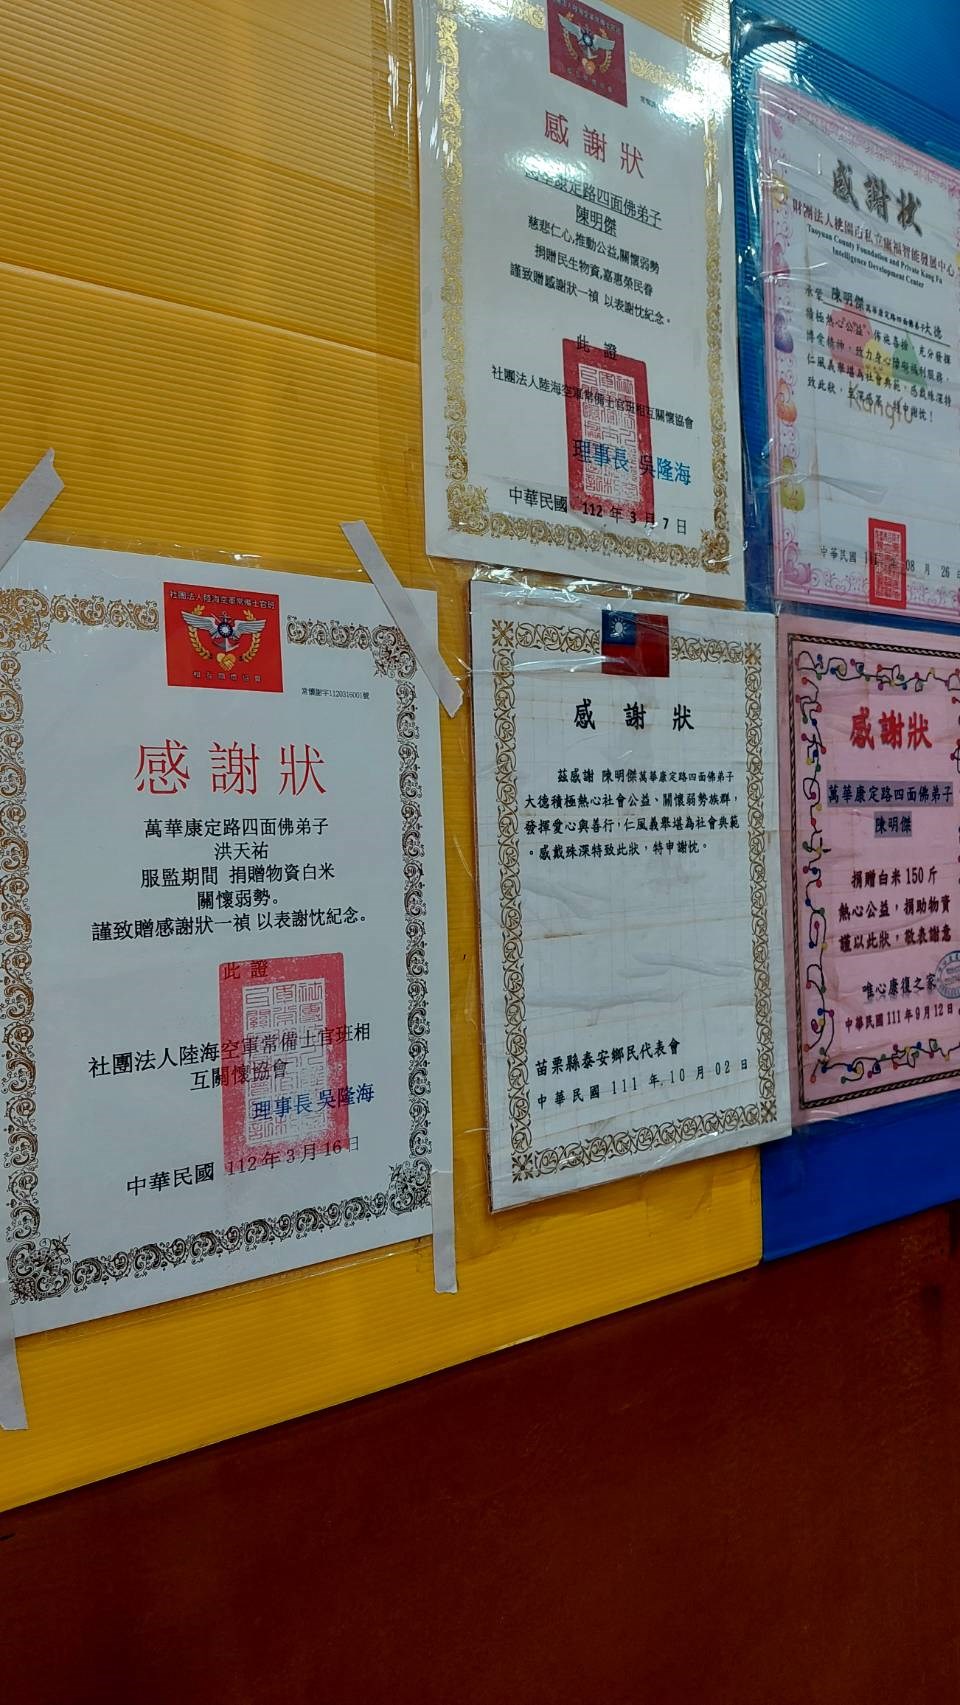 感謝狀
萬華康定路四面佛弟子
陳明傑
慈悲仁心,推動公益,關懷弱勢
捐贈民生物資,嘉惠榮民眷
謹致贈感謝狀一禎 以表謝忱紀念。
此 證
社團法人陸海空軍常備士官班相互關懷協會
理事長 吳隆海
中華民國 112 年 3 月 7 日
感謝狀
財團法人桃園市私立康福智能發展中心
Taoyuan County Foundation and Private Kang Fu
Intelligence Development Center
承蒙 陳明傑萬華康定路四面佛弟子大德
積極熱心公益、佈施喜捨,充分發揮
博愛精神,致力身心障礙福利服務,
仁風義舉堪為社會典範,感戴殊深特
致此狀,
特申謝忱!
中華民國
08 月 26
社團法人陸海空軍常備士官班
相互關懷協會
常備謝字1120316001號
感謝狀
萬華康定路四面佛弟子
洪天祐
服監期間 捐贈物資白米
關懷弱勢。
謹致贈感謝狀一禎 以表謝忱紀念。
此 證
社團法人陸海空軍常備士官班相
互關懷協會
理事長 吳隆海
中華民國 112 年 3 月 16 日
感謝狀
茲感謝 陳明傑萬華康定路四面佛弟子
大德積極熱心社會公益、關懷弱勢族群,
發揮愛心與善行,仁風義舉堪為社會典範
。感戴殊深特致此狀,特申謝忱。
苗栗縣泰安鄉民代表會
中華民國 111 年 10 月 02 日
感謝狀
萬華康定路四面佛弟子
陳明傑
捐贈白米 150 斤
熱心公益,捐助物資
謹以此狀,敬表謝意
唯心康復之家
中華民國 111 年 9 月 12 日